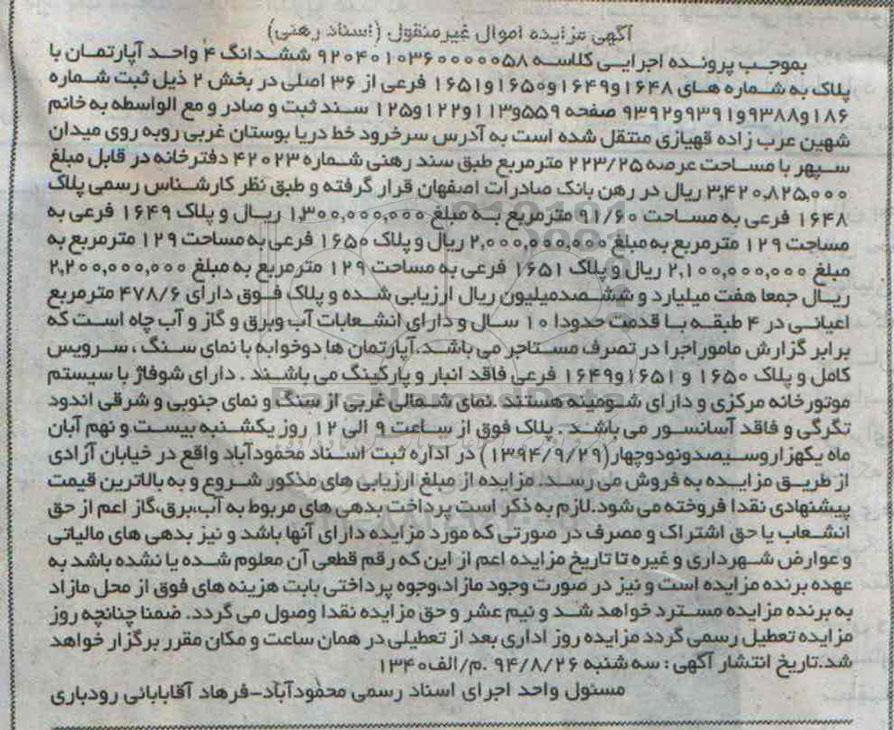 آگهی مزایده اموال غیرمنقول (اسناد رهنی)
بموجب پرونده اجرایی کلاسه ۹۲۰۴۰۱۰۳۶۰۰۰۰۰۰۵۸ ششدانگ ۴ واحد آپارتمان با
پلاک به شماره های ۱۶۴۸ و۱۶۴۹و۱۶۵۰و۱۶۵۱ فرعی از ۳۶ اصلی در بخش ۲ ذیل ثبت شماره
۱۸۶و۹۳۸۸و۹۳۹۱و۹۳۹۲ صفحه ۵۵۹و۱۱۳و۱۲۲و۱۲۵ سند ثبت و صادر و مع الواسطه به خانم
شهین عرب زاده قهیازی منتقل شده است به آدرس سرخرود خط دریا بوستان غربی روبه روی میدان
سپهر با مساحت عرصه ۲۲۳/۲۵ مترمربع طبق سند رهنی شماره ۴۲۰۲۳ دفترخانه در قابل مبلغ
۳,۴۲۰,۸۲۵,۰۰۰ ریال در رهن بانک صادرات اصفهان قرار گرفته و طبق نظر کارشناس رسمی پلاک
۱۶۴۸ فرعی به مساحت ۹۱/۶۰ مترمربع به مبلغ ۱,۳۰۰,۰۰۰,۰۰۰ ریال و پلاک ۱۶۴۹ فرعی به
مساحت ۱۲۹ مترمربع به مبلغ ۲,۰۰۰,۰۰۰,۰۰۰ ریال و پلاک ۱۶۵۰ فرعی به مساحت ۱۲۹ مترمربع به
مبلغ ۲,۱۰۰,۰۰۰,۰۰۰ ریال و پلاک ۱۶۵۱ فرعی به مساحت ۱۲۹ مترمربع به مبلغ ۲,۲۰۰,۰۰۰,۰۰۰
ریال جمعا هفت میلیارد و ششصدمیلیون ریال ارزیابی شده و پلاک فوق دارای ۴۷۸/۶ مترمربع
اعیانی در ۴ طبقه با قدمت حدودا ۱۰ سال و دارای انشعابات آب وبرق و گاز و آب چاه است که
برابر گزارش مامور اجرا در تصرف مستاجر می باشد.آپارتمان ها دوخوابه با نمای سنگ ، سرویس
کامل و پلاک ۱۶۵۰ و ۱۶۵۱و۱۶۴۹ فرعی فاقد انبار و پارکینگ می باشند . دارای شوفاژ با سیستم
موتورخانه مرکزی و دارای شومینه هستند .نمای شمالی غربی از سنگ و نمای جنوبی و شرقی اندود
تگرگی و فاقد آسانسور می باشد . پلاک فوق از ساعت ۹ الی ۱۲ روز یکشنبه بیست و نهم آبان
ماه یکهزاروسیصدونودوچهار(۱۳۹۴/۹/۲۹) در اداره ثبت اسناد محمودآباد واقع در خیابان آزادی
از طریق مزایده به فروش می رسد. مزایده از مبلغ ارزیابی های مذکور شروع و به بالاترین قیمت
پیشنهادی نقدا فروخته می شود.لازم به ذکر است پرداخت بدهی های مربوط به آب،برق،گاز اعم از حق
انشعاب یا حق اشتراک و مصرف در صورتی که مورد مزایده دارای آنها باشد و نیز بدهی های مالیاتی
و عوارض شهرداری و غیره تا تاریخ مزایده اعم از این که رقم قطعی آن معلوم شده یا نشده باشد به
عهده برنده مزایده است و نیز در صورت وجود مازاد،وجوه پرداختی بابت هزینه های فوق از محل مازاد
به برنده مزایده مسترد خواهد شد و نیم عشر و حق مزایده نقدا وصول می گردد. ضمنا چنانچه روز
مزایده تعطیل رسمی گردد مزایده روز اداری بعد از تعطیلی در همان ساعت و مکان مقرر برگزار خواهد
شد.تاریخ انتشار آگهی : سه شنبه ۹۴/۸/۲۶ .م/الف۱۳۴۰
مسئول واحد اجرای اسناد رسمی محمودآباد-فرهاد آقابابائی رودباری